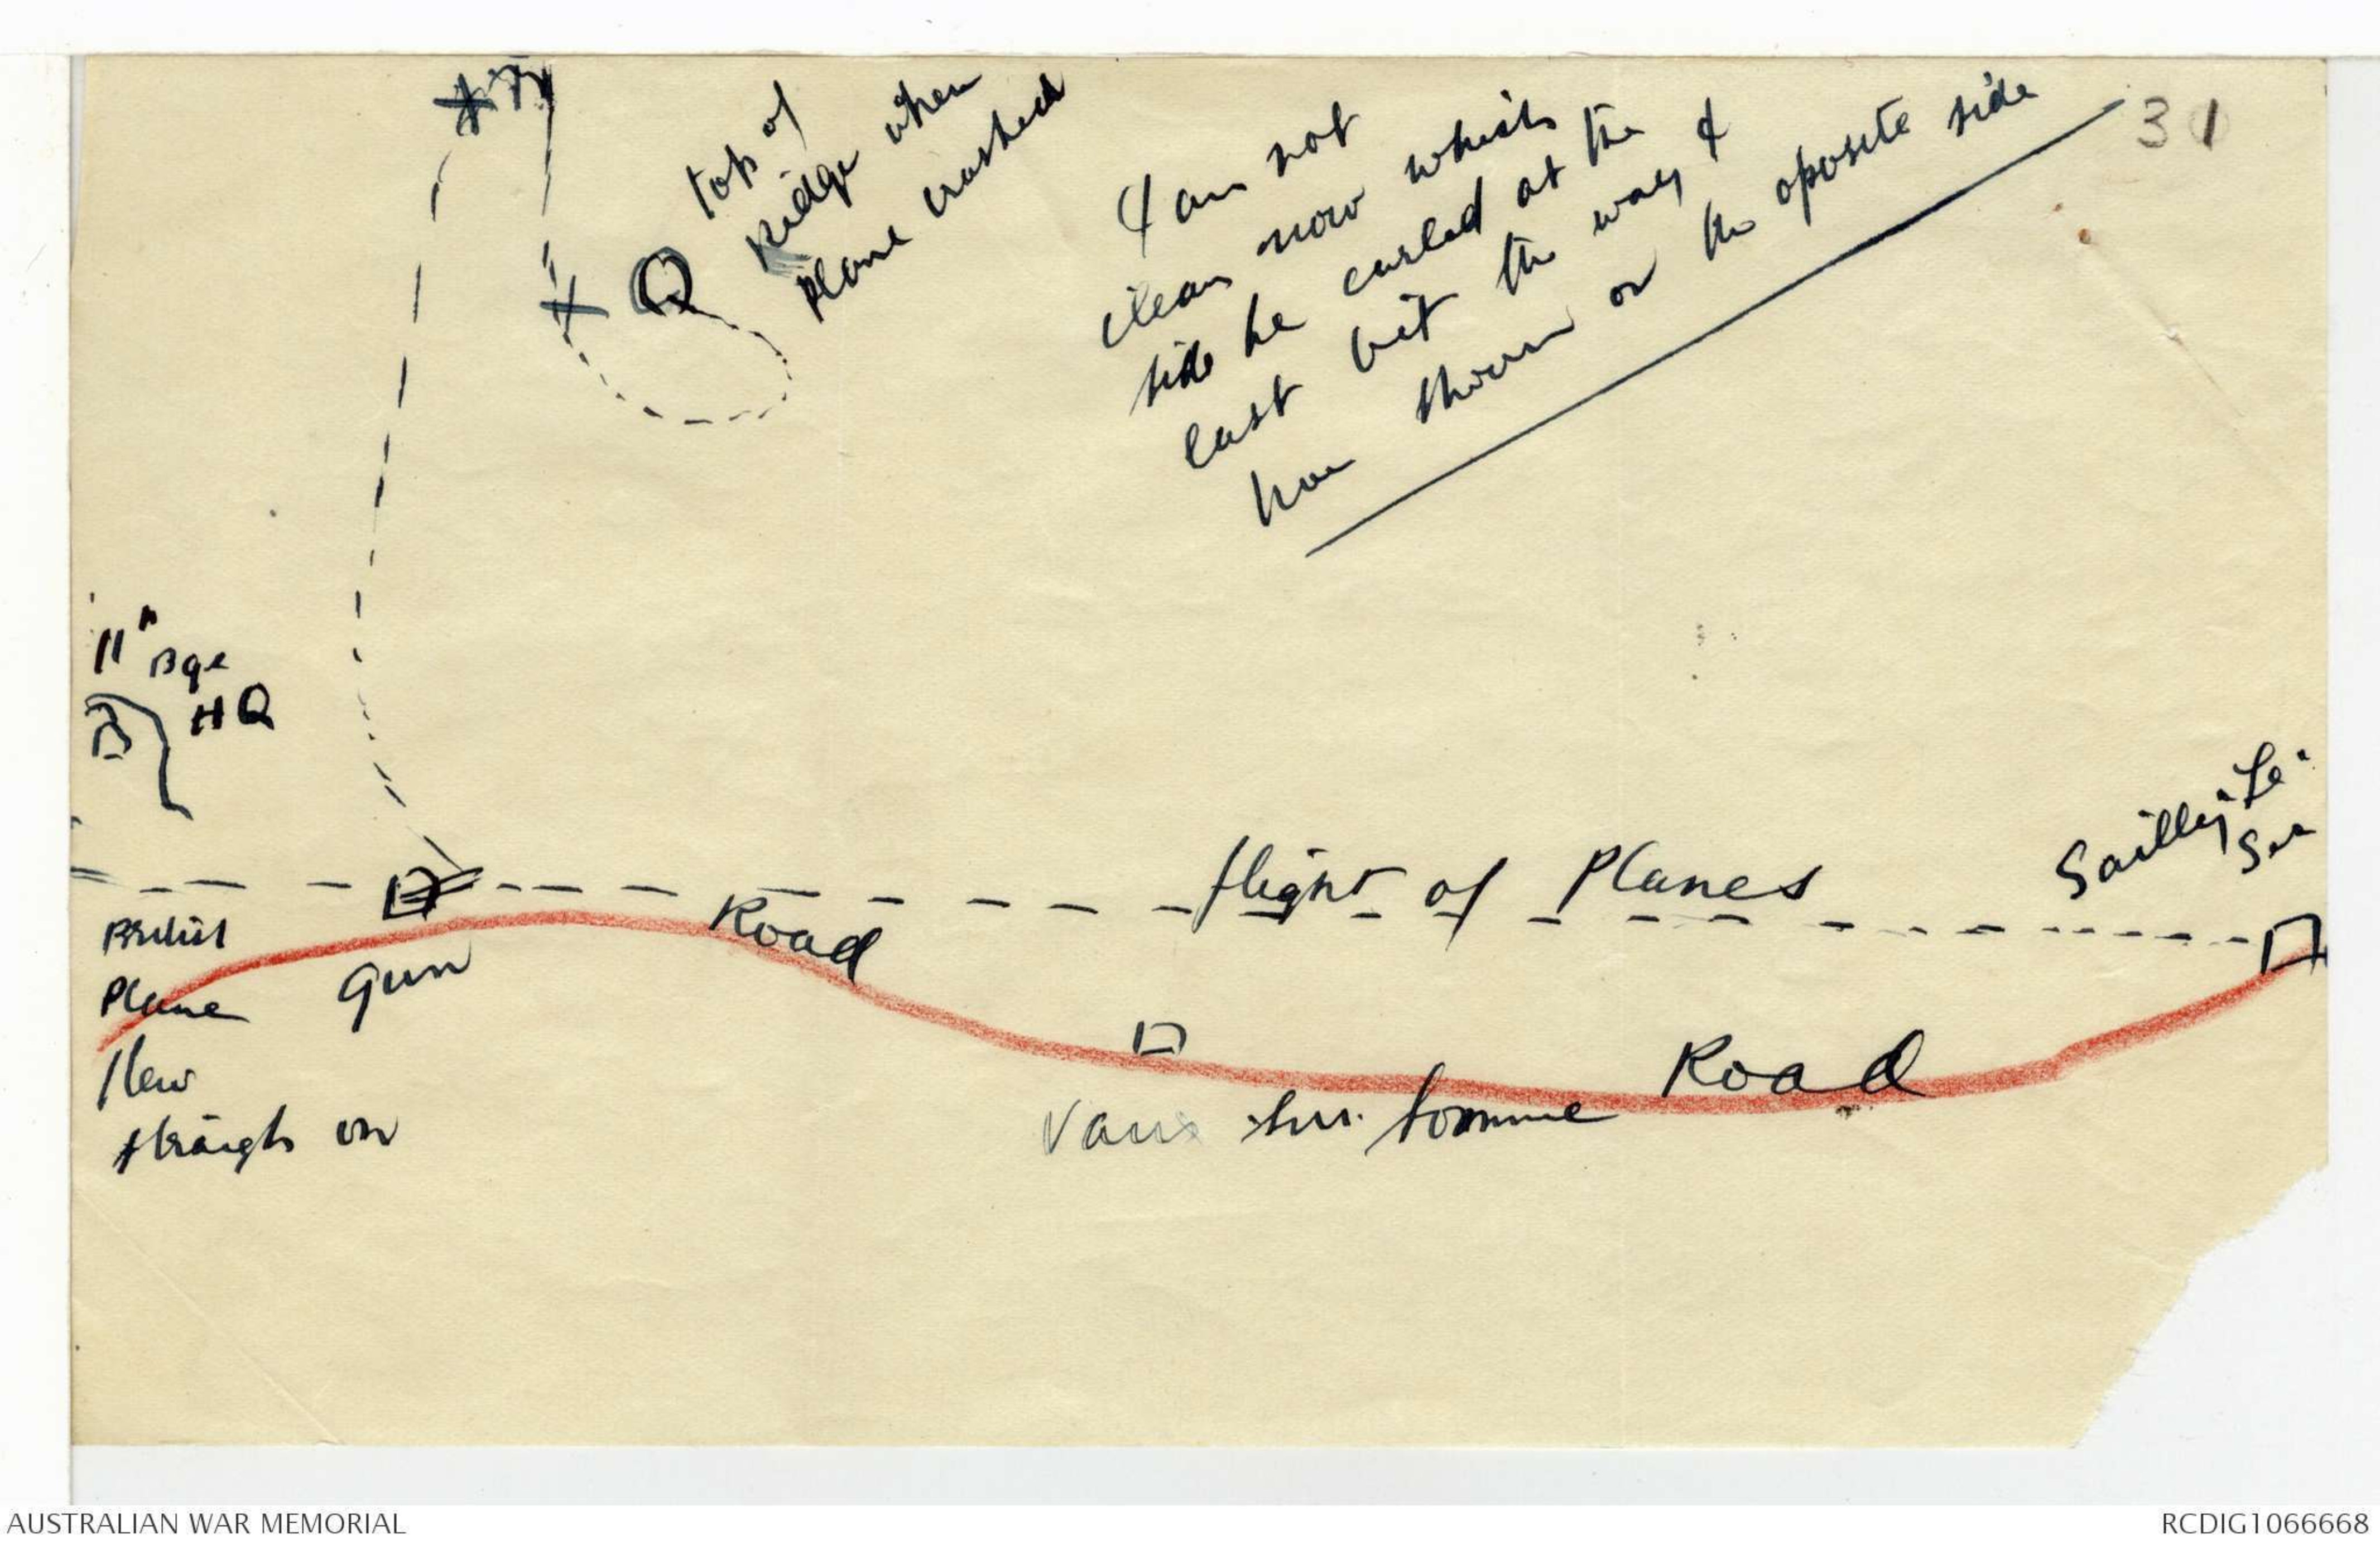 top of
Ridge when
Plane crashed
I am not
clear now which
side he curled at the
last bit the way I
have shown or the oposite side
31
11th Bge
HQ
flight of Planes
Sailly Le
Sec
Road
British
Plane
flew
straight on
Gun
Road
Vaux Sur. Somme
AUSTRALIAN WAR MEMORIAL
RCDIG1066668